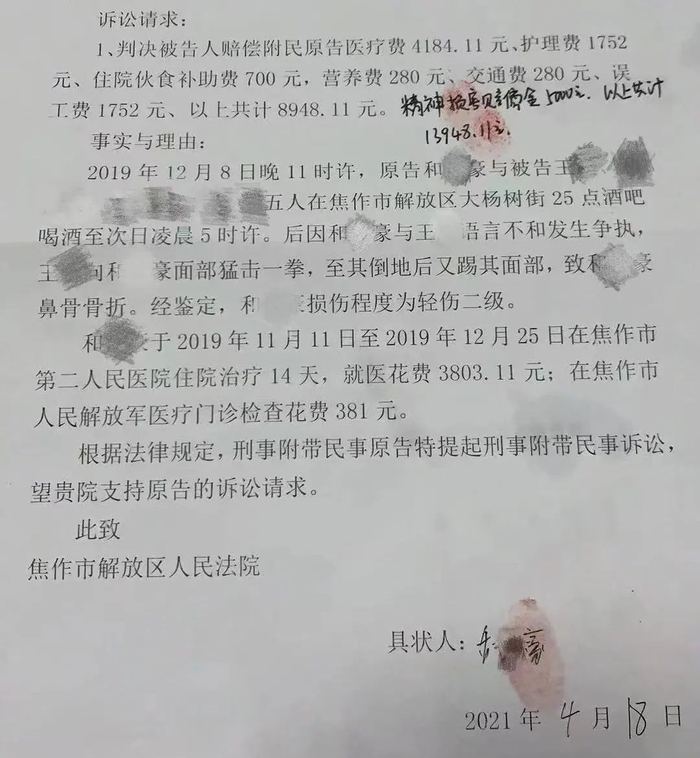 诉讼请求：
1、判决被告人赔偿附民原告医疗费 4184.11 元、护理费 1752
元、住院伙食补助费 700 元，营养费 280 元、交通费 280 元、误
工费 1752 元、以上共计 8948.11 元。精神损害赔偿金5000元. 以上共计
13948.11元.
事实与理由：
2019 年 12 月 8 日晚 11 时许，原告和豪与被告王
五人在焦作市解放区大杨树街 25 点酒吧
喝酒至次日凌晨 5 时许。后因和豪与王语言不和发生争执，
王向和豪面部猛击一拳，至其倒地后又踢其面部，致和豪
鼻骨骨折。经鉴定，和损伤程度为轻伤二级。
和于 2019 年 11 月 11 日至 2019 年 12 月 25 日在焦作市
第二人民医院住院治疗 14 天，就医花费 3803.11 元；在焦作市
人民解放军医疗门诊检查花费 381 元。
根据法律规定，刑事附带民事原告特提起刑事附带民事诉讼，
望贵院支持原告的诉讼请求。
此致
焦作市解放区人民法院
具状人：和豪
2021 年 4 月 18 日